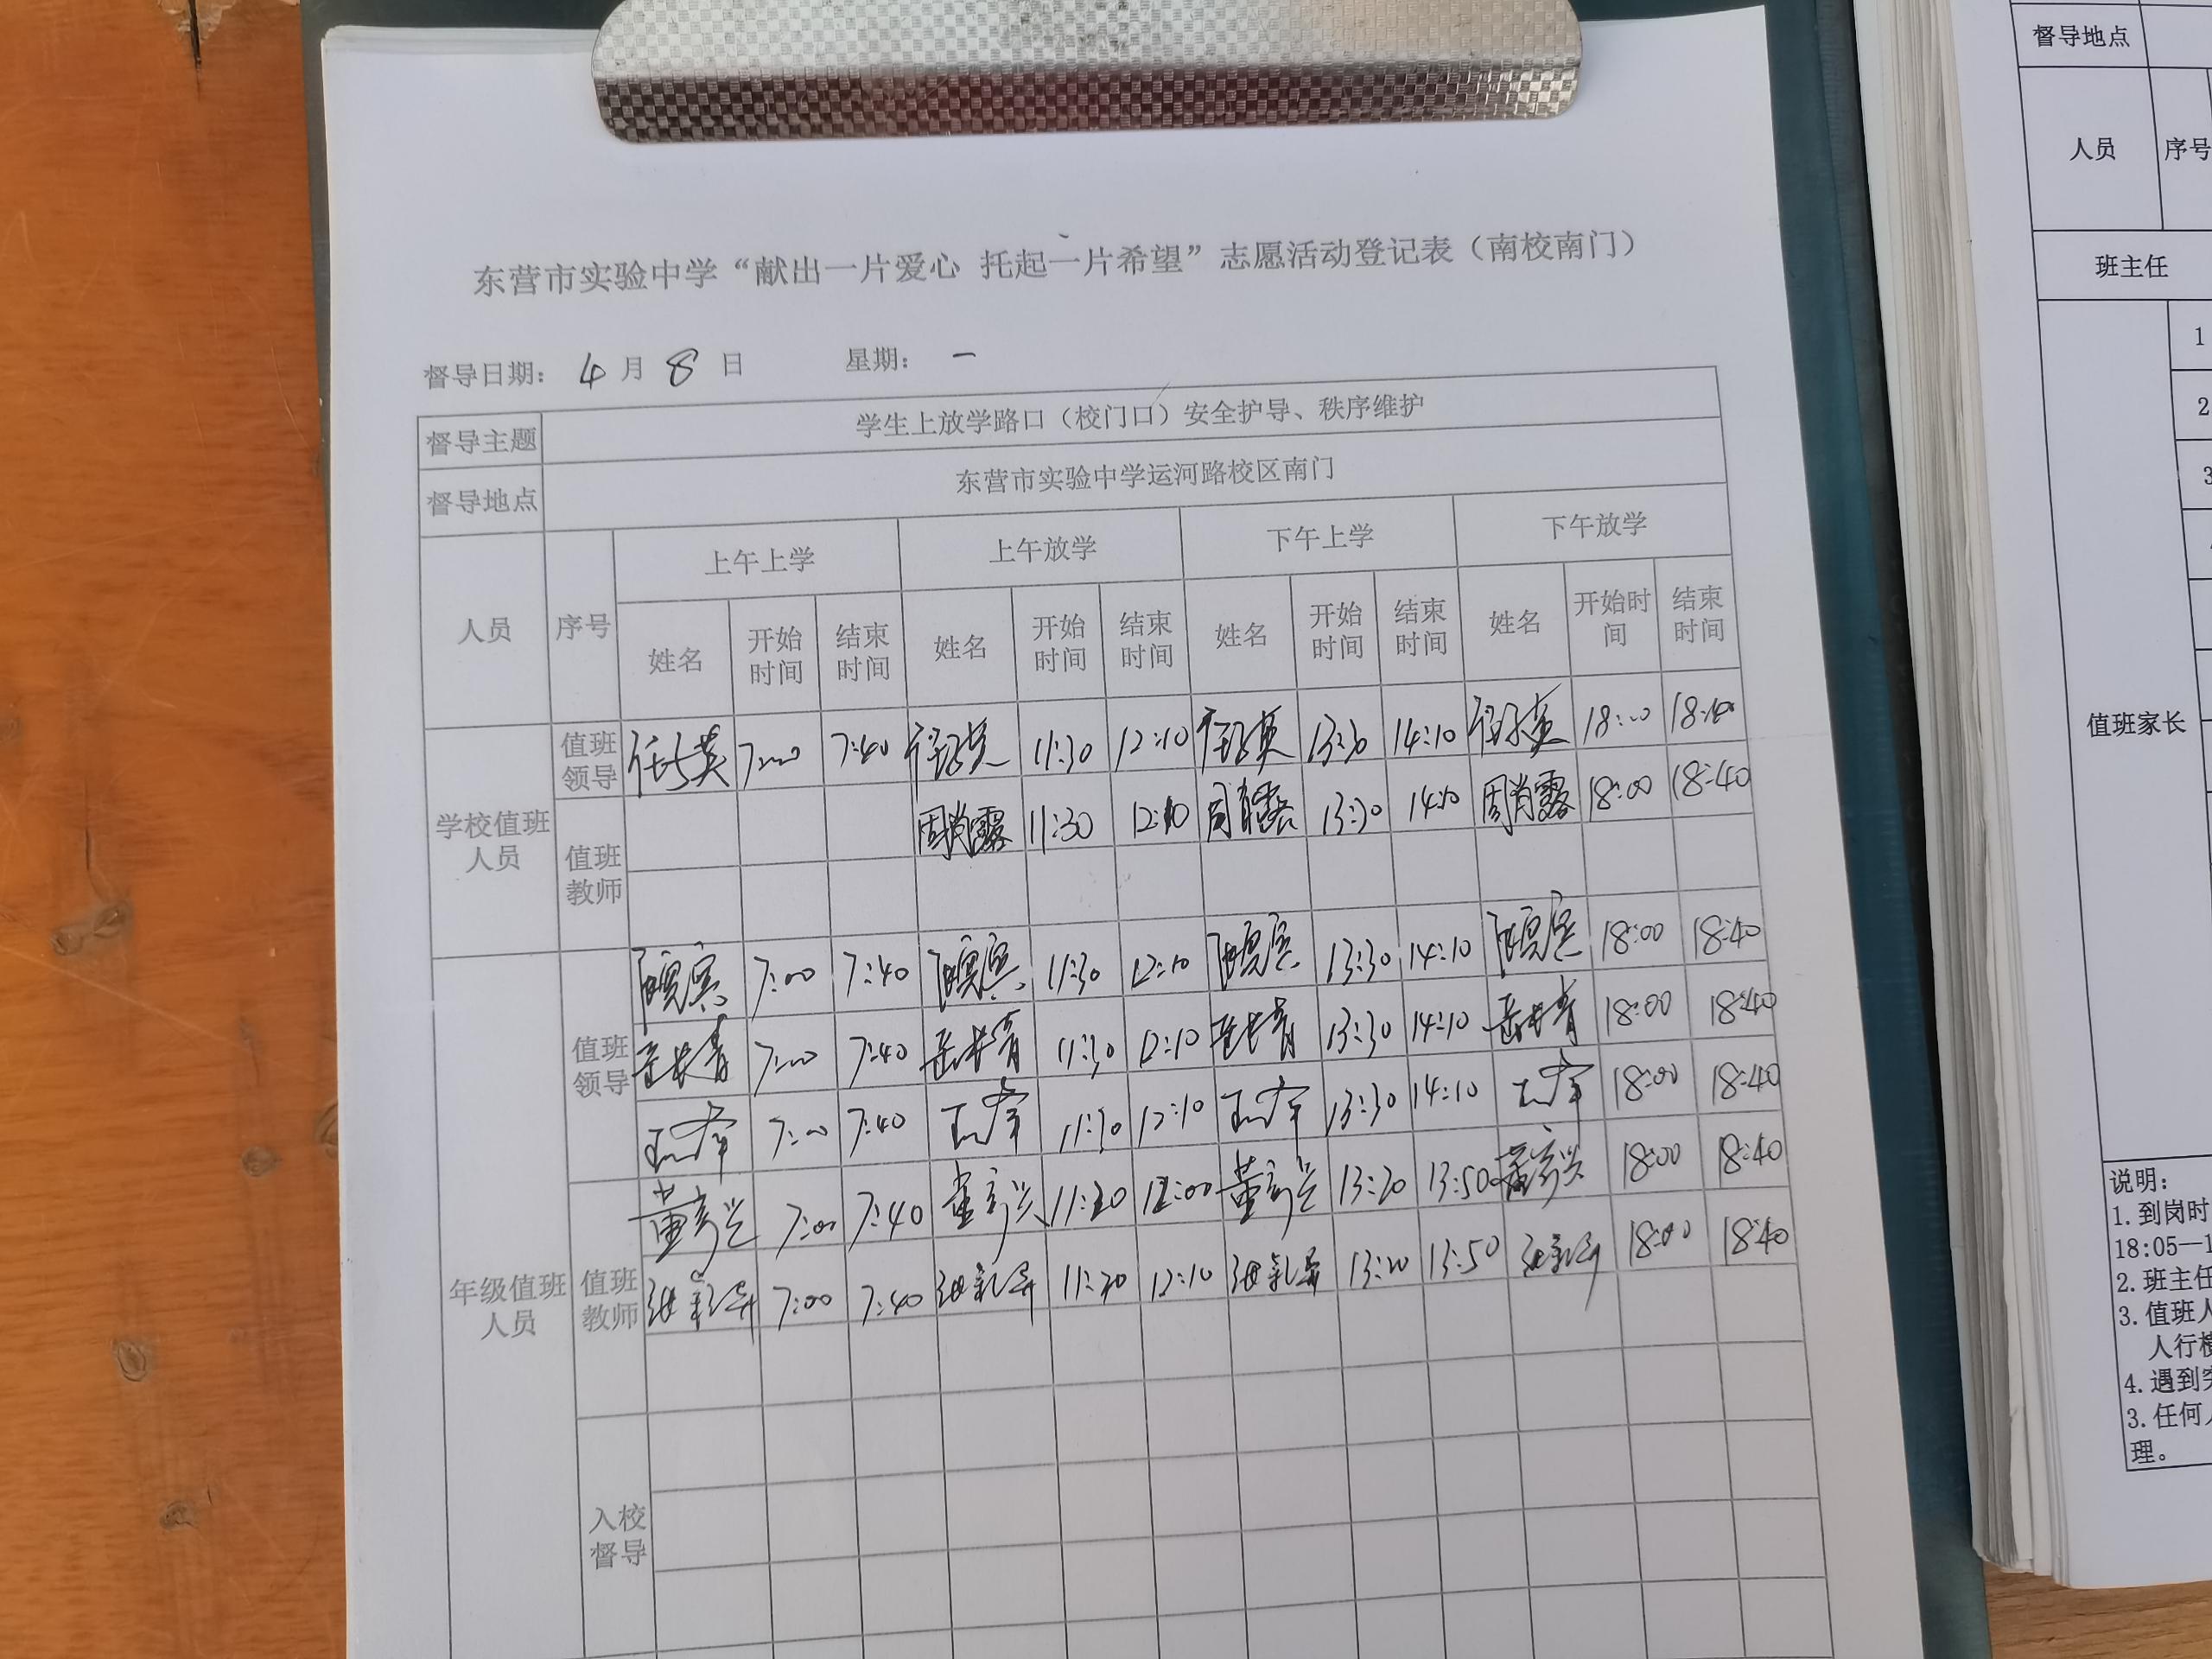 东营市实验中学“献出一片爱心 托起一片希望”志愿活动登记表（南校南门）
督导日期： 4 月 8 日 星期： 一
督导主题 学生上放学路口（校门口）安全护导、秩序维护
督导地点 东营市实验中学运河路校区南门
人员 序号 上午上学 上午放学 下午上学 下午放学
姓名 开始时间 结束时间 姓名 开始时间 结束时间 姓名 开始时间 结束时间 姓名 开始时间 结束时间
学校值班人员
值班领导 7:00 7:40 11:30 12:10 13:30 14:10 18:00 18:40
值班教师 周肖露 11:30 12:10 周肖露 13:30 14:10 周肖露 18:00 18:40
年级值班人员
值班领导 7:00 7:40 11:30 12:10 13:30 14:10 18:00 18:40
岳长青 7:00 7:40 岳长青 11:30 12:10 岳长青 13:30 14:10 岳长青 18:00 18:40
7:00 7:40 11:30 12:10 13:30 14:10 18:00 18:40
值班教师 董 7:00 7:40 董 12:00 董 13:20 13:50 董 18:00 18:40
7:00 7:40 11:20 12:10 13:20 13:50 18:00 18:40
入校督导
督导地点
人员 序号
班主任
值班家长
1
2
3
说明：
1.到岗时
18:05—1
2.班主任
3.值班人
人行横
4.遇到突
3.任何人
理。